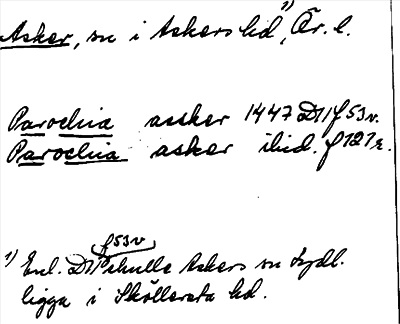 Asker, sn i Askers hd¹), Ör. l.
Parochia assker 1447 D11 f 53 v.
Parochia asker ibid. f 121 r.
f 53 v
¹) Enl. D11 skulle Askers sn tydl.
ligga i Sköllersta hd.